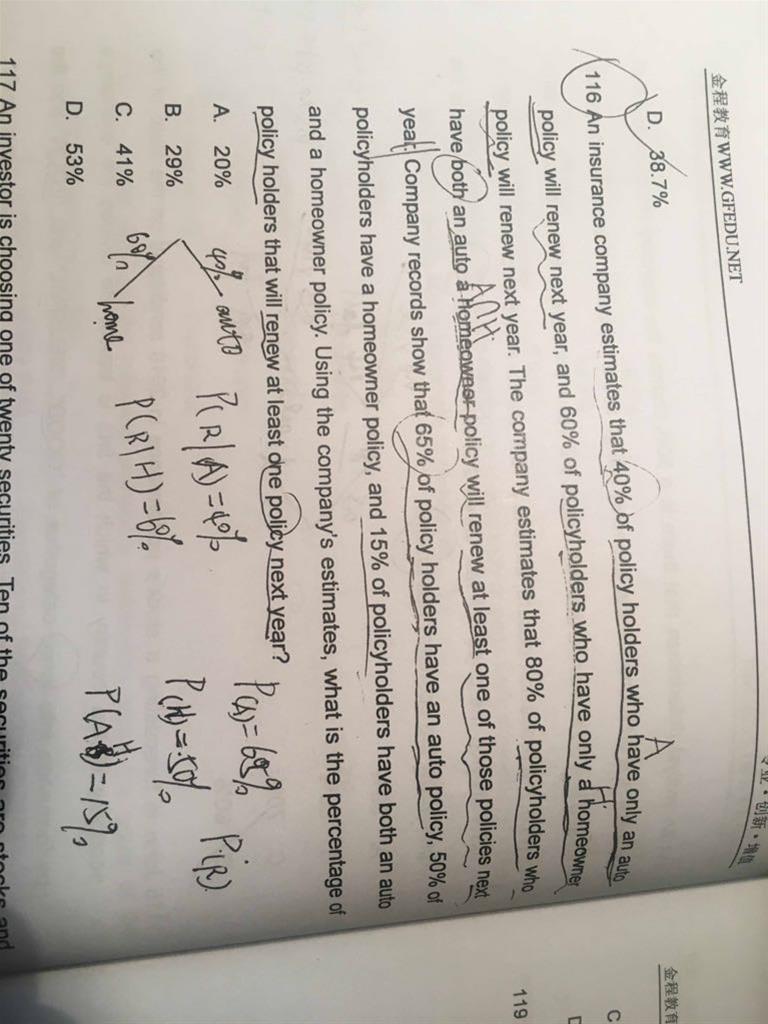 金程教育WWW.GFEDU.NET
专业·创新·增值
D. 38.7%
116 An insurance company estimates that 40% of policy holders who have only an auto
policy will renew next year, and 60% of policyholders who have only a homeowner
policy will renew next year. The company estimates that 80% of policyholders who
have both an auto a homeowner policy will renew at least one of those policies next
year. Company records show that 65% of policy holders have an auto policy, 50% of
policyholders have a homeowner policy, and 15% of policyholders have both an auto
and a homeowner policy. Using the company's estimates, what is the percentage of
policy holders that will renew at least one policy next year?
A. 20%
B. 29%
C. 41%
D. 53%
A
H
A∩H
40% auto
60% home
P(R|A)=40%
P(R|H)=60%
P(A)=65%
P(H)=50%
P(R)
P(AH)=15%
117 An investor is choosing one of twenty securities. Ten of the securities are stocks and
金程教育
C
D
119